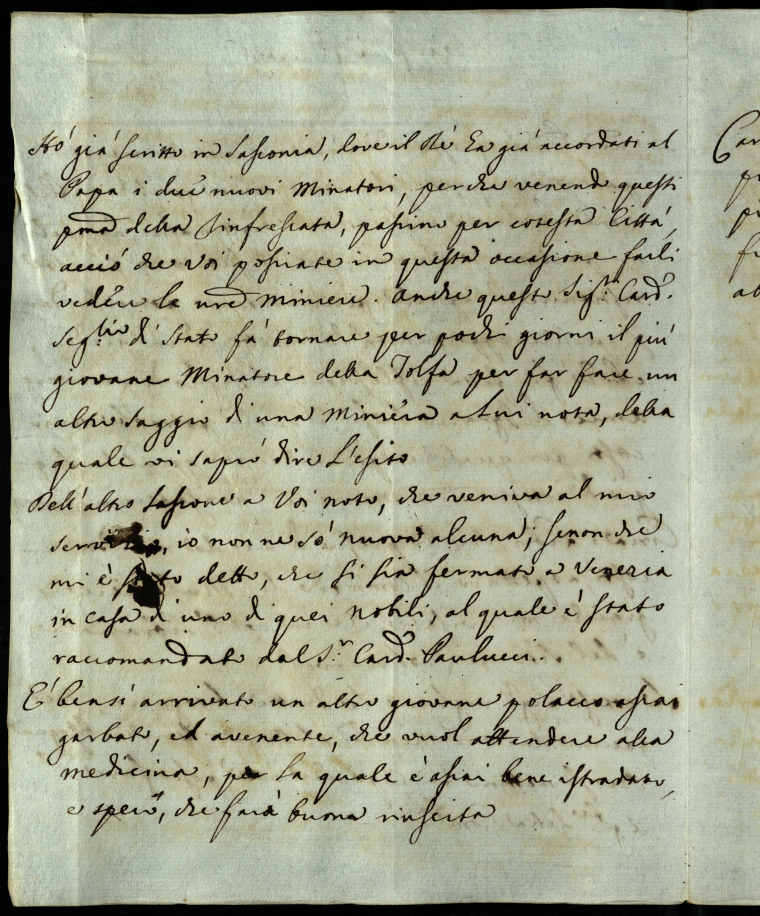 Hó giá scritto in Sassonia, dove il Ré ha giá accordati al
Papa i due nuovi Minatori, perche venendo questi
pma della rinfrescata, passino per cotesta Cittá,
acció che Voi possiate in questa occasione farli
vedere le nre miniere. Anche questo Sigr. Card.
Segrio di Stato fá tornare per pochi giorni il piú
giovane Minatore della Tolfa per far fare un
altro saggio di una miniera a Lui nota, della
quale vi sapró dire l'esito
Dell'altro Sassone a Voi noto, che veniva al mio
servizio, io non ne só nuova alcuna; senon che
mi é stato detto, che si sia fermato a Venezia
in casa di uno di quei nobili, al quale é stato
raccomandato dal Sr. Card. Paulucci.
E' bensí arrivato un altro giovane polacco assai
garbato, ed avenente, che vuol attendere alla
medicina, per la quale é assai bene istradato,
e spero, che fará buona riuscita
Car
p
p
f
ab